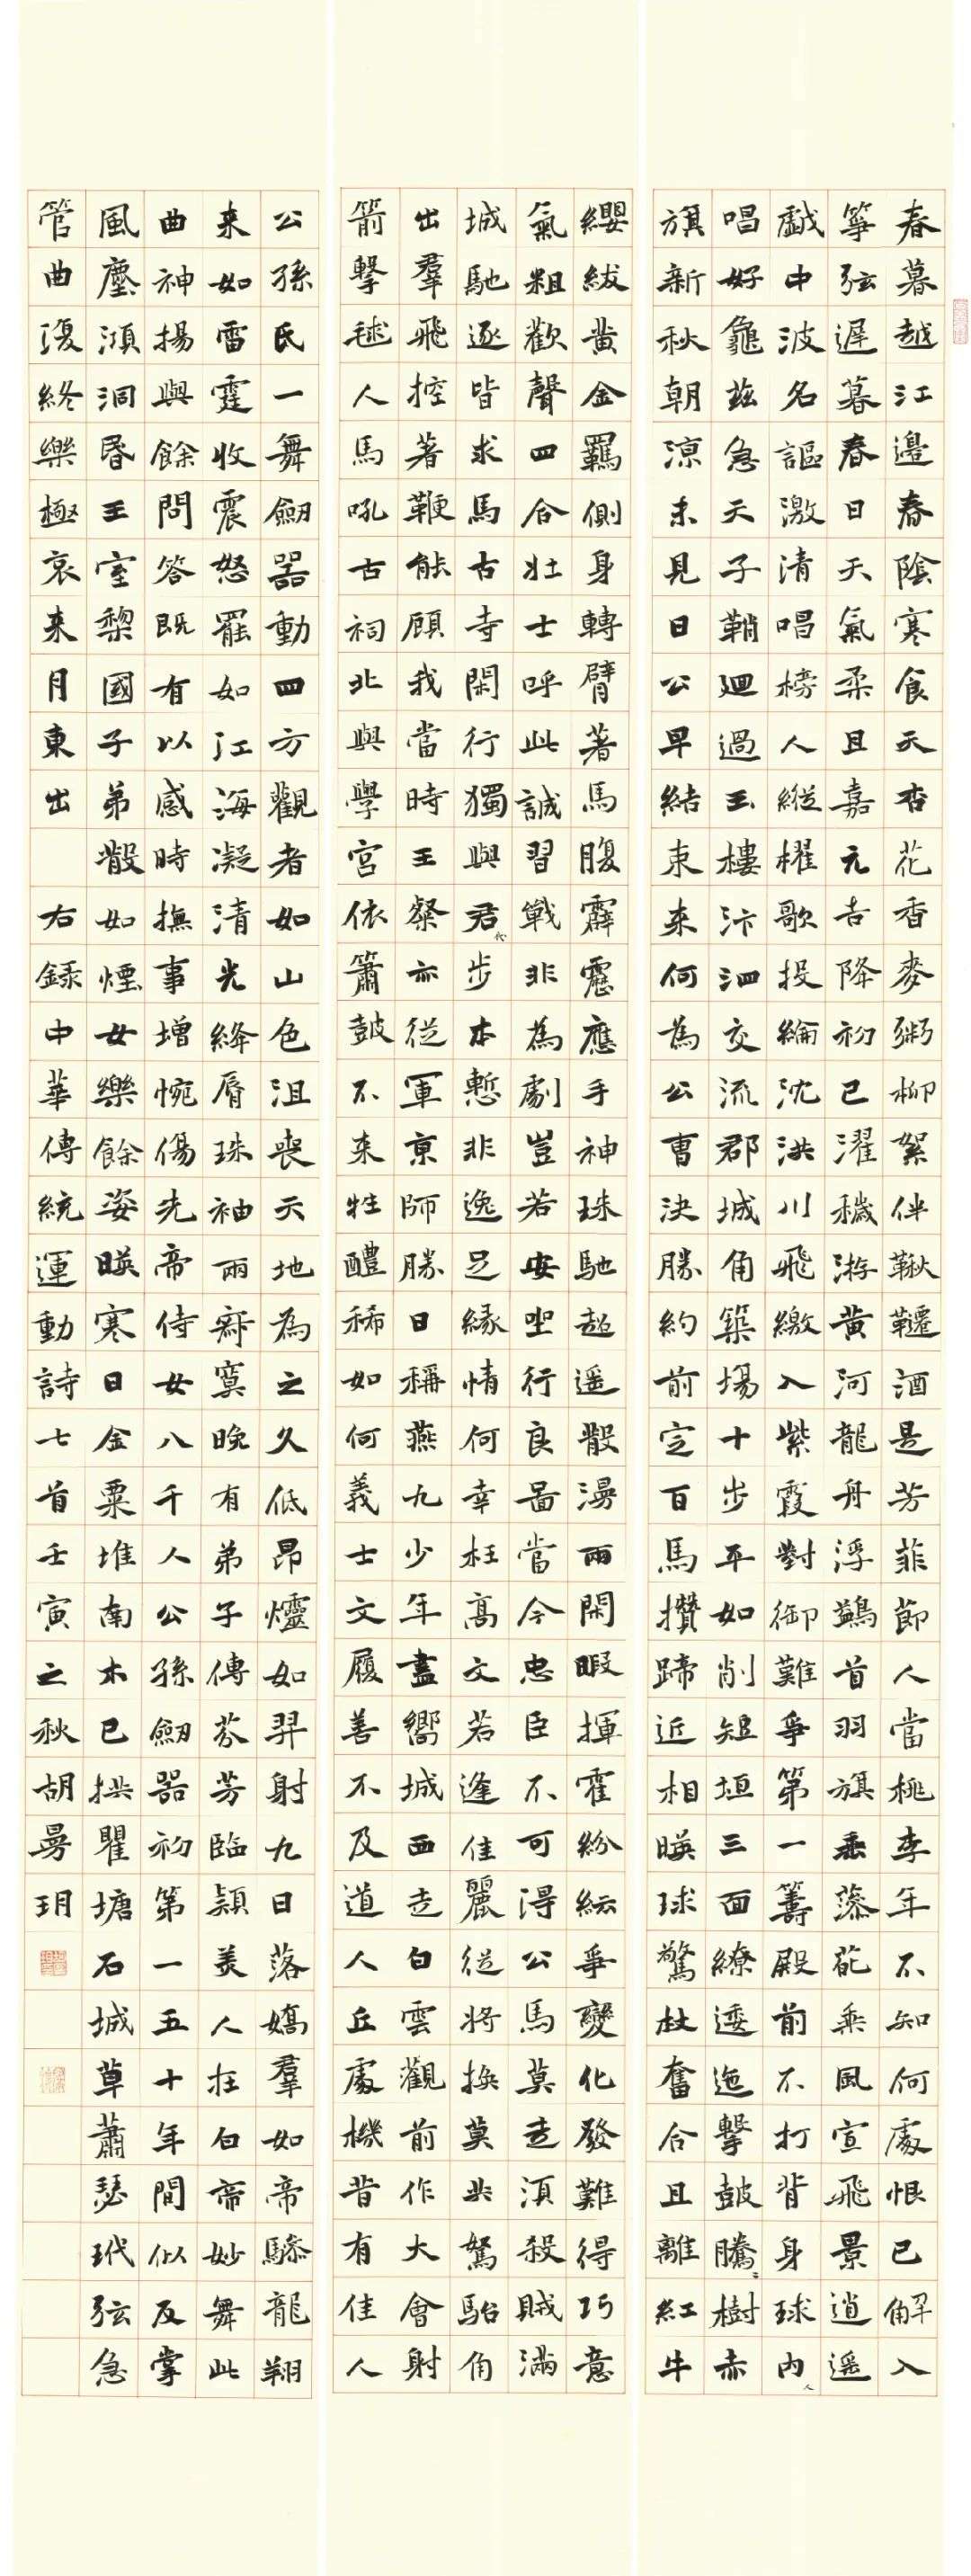 春暮越江邊春陰寒食天杏花香麥粥柳絮伴鞦韆酒是芳菲節人當桃李年不知何處恨已解入
箏弦遲暮春日天氣柔且嘉元吉降初已濯穢游黃河龍舟浮鷁首羽旗垂藻葩乘風宣飛景逍遙
戲中波名謳激清唱榜人縱櫂歌投綸沈洪川飛繳入紫霞對御難爭第一籌殿前不打背身球內人
唱好龜茲急天子鞘迴過玉樓汴泗交流郡城角築場十步平如削短垣三面繚逶迤擊鼓騰〻樹赤
旗新秋朝涼未見日公早結束來何為公曹決勝約前定百馬攢蹄近相映球驚杖奮合且離紅牛
纓紱黃金羈側身轉臂著馬腹霹靂應手神珠馳超遙散漫兩閑暇揮霍紛紜爭變化發難得巧意
氣粗歡聲四合壯士呼此誠習戰非為劇豈若安坐行良圖當今忠臣不可得公馬莫走須殺賊滿
城馳逐皆求馬古寺閑行獨與君代步本慙非逸足緣情何幸枉高文若逢佳麗從將換莫共駑駘角
出羣飛控著鞭能顧我當時王粲亦從軍京師勝日稱燕九少年盡嚮城西走白雲觀前作大會射
箭擊毬人馬吼古祠北與學宮依簫鼓不來牲醴稀如何義士文履善不及道人丘處機昔有佳人
公孫氏一舞劍器動四方觀者如山色沮喪天地為之久低昂爧如羿射九日落嬌羣如帝驂龍翔
來如雷霆收震怒罷如江海凝清光絳脣珠袖兩寂寞晚有弟子傳芬芳臨潁美人在白帝妙舞此
曲神揚與餘問答既有以感時撫事增惋傷先帝侍女八千人公孫劍器初第一五十年間似反掌
風塵澒洞昏王室棃國子弟散如煙女樂餘姿映寒日金粟堆南木已拱瞿塘石城草蕭瑟玳弦急
管曲復終樂極哀來月東出 右錄中華傳統運動詩七首壬寅之秋胡曼玥